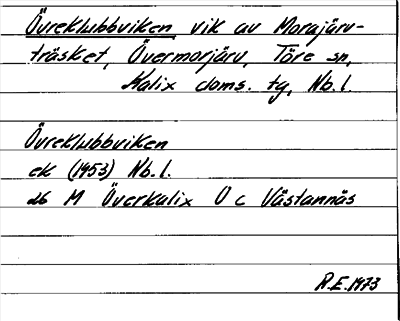 Övreklubbviken, vik av Morajärv-
träsket, Övermorjärv, Töre sn,
Kalix doms. tg, Nb. l.
Övreklubbviken
ek (1953) Nb. l.
26 M Överkalix O c Västannäs
R.E. 1973